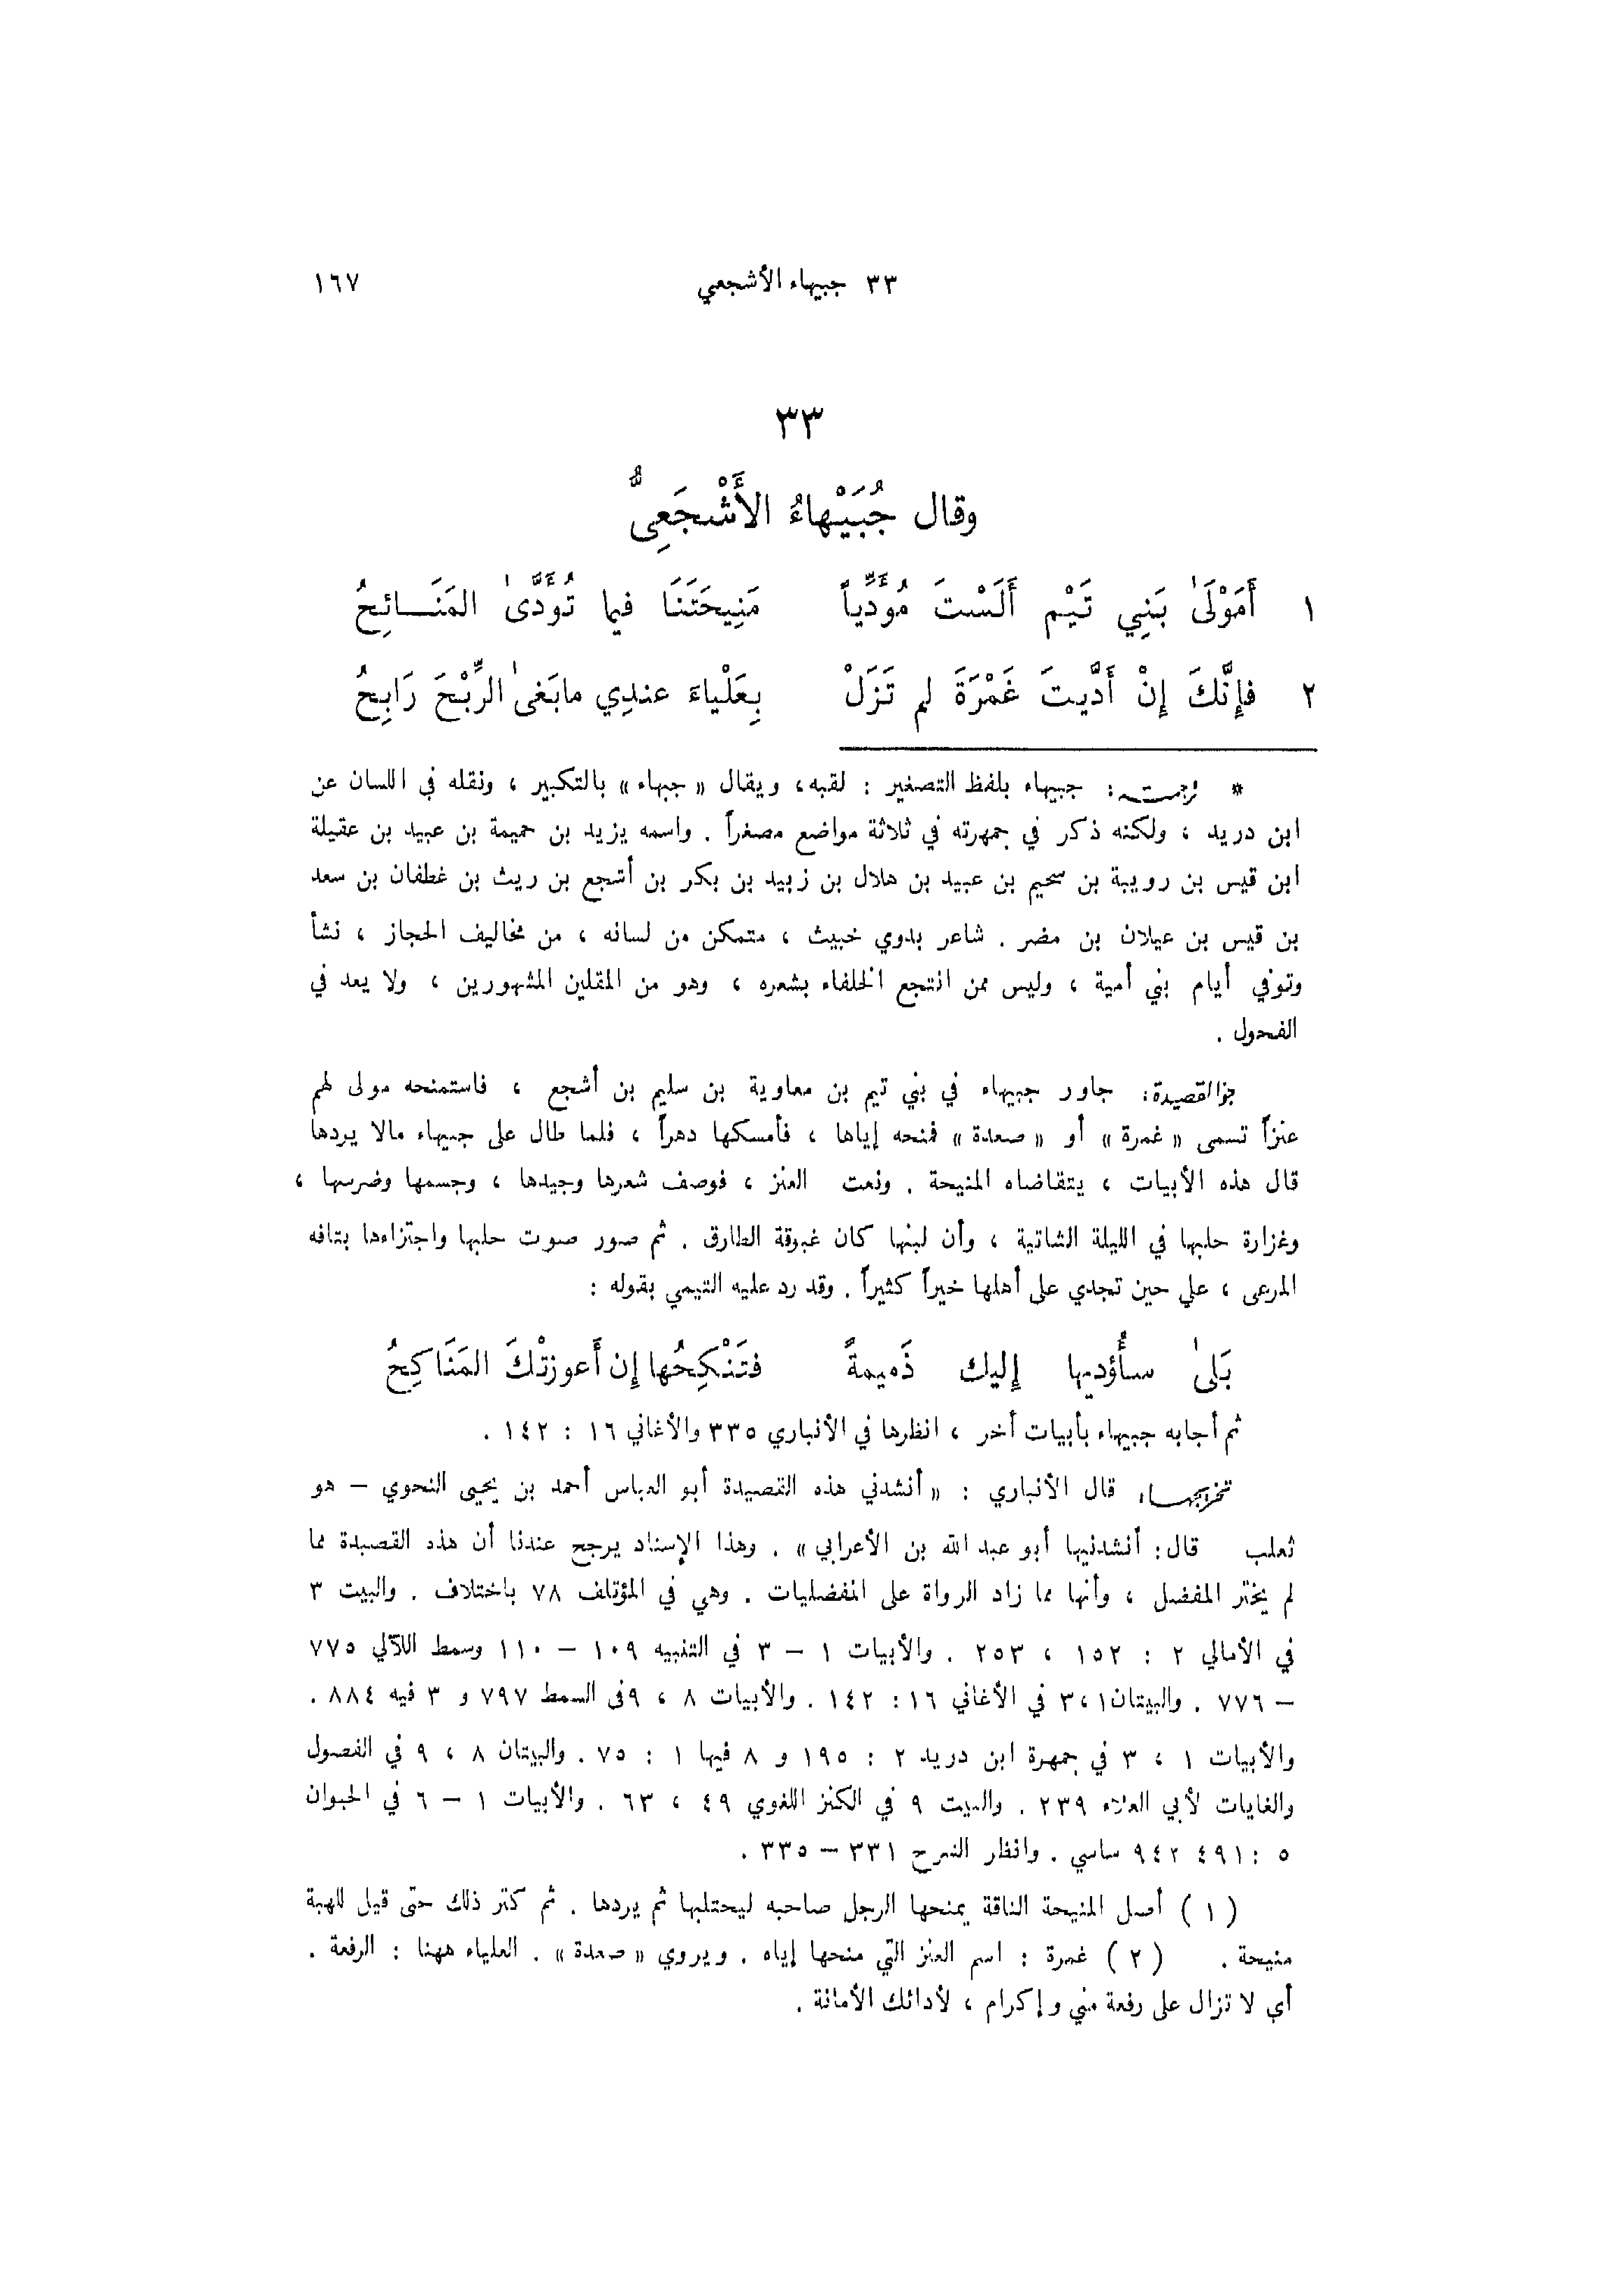 ٣٣ جبيهاء الأشجعي ١٦٧
٣٣
وقال جُبَيْهاءُ الأَشْجَعِىُّ
١ أَمَوْلَىٰ بَنِي تَيْم أَلَسْتَ مُؤَدِّياً مَنِيحَتَنَا فيما تُؤَدَّىٰ المَنَائِحُ
٢ فإِنَّكَ إِنْ أَدَّيتَ غَمْرَةَ لم تَزَلْ بِعَلْياءَ عندِي مابَغىٰ الرِّبْحَ رَابِحُ
* ترجمته: جبيهاء بلفظ التصغير : لقبه، ويقال « جبهاء» بالتكبير ، ونقله فى اللسان عن
ابن دريد ، ولكنه ذكر في جمهرته في ثلاثة مواضع مصغراً . واسمه يزيد بن حميمة بن عبيد بن عقيلة
ابن قيس بن رويبة بن سحيم بن عبيد بن هلال بن زبيد بن بكر بن أشجع بن ريث بن غطفان بن سعد
بن قيس بن عيلان بن مضر . شاعر بدوي خبيث ، متمكن من لسانه ، من مخاليف الحجاز ، نشأ
وتوفي أيام بني أمية ، وليس ممن انتجع الخلفاء بشعره ، وهو من المقلين المشهورين ، ولا يعد في
الفحول .
جو القصيدة: جاور جبيهاء في بني تيم بن معاوية بن سليم بن أشجع ، فاستمنحه مولى لهم
عنزاً تسمى « غمرة » أو « صعدة » فمنحه إياها ، فأمسكها دهراً ، فلما طال على جبيهاء مالا يردها
قال هذه الأبيات ، يتقاضاه المنيحة . ونعت العنز ، فوصف شعرها وجيدها ، وجسمها وضرسها ،
وغزارة حلبها في الليلة الشاتية ، وأن لبنها كان غبوقة الطارق . ثم صور صوت حلبها واجتزاءها بتافه
المرعى ، على حين تجدي على أهلها خيراً كثيراً . وقد رد عليه التيمي بقوله :
بَلىٰ سأُؤديها إِليك ذَميمةً فتَنْكِحُها إِن أَعوزتْكَ المَنَاكِحُ
ثم أجابه جبيهاء بأبيات أخر ، انظرها في الأنباري ٣٣٥ والأغاني ١٦ : ١٤٢ .
تخريجها: قال الأنباري : « أنشدني هذه القصيدة أبو العباس أحمد بن يحيى النحوي – هو
ثعلب قال: أنشدنيها أبو عبد الله بن الأعرابي» . وهذا الإسناد يرجح عندنا أن هذه القصيدة مما
لم يختر المفضل ، وأنها مما زاد الرواة على المفضليات . وهي في المؤتلف ٧٨ باختلاف . والبيت ٣
في الأمالي ٢ : ١٥٢ ، ٢٥٣ . والأبيات ١ – ٣ في التنبيه ١٠٩ – ١١٠ وسمط اللآلي ٧٧٥
– ٧٧٦ . والبيتان١ ،٣ في الأغاني ١٦ : ١٤٢ . والأبيات ٨ ، ٩فى السمط ٧٩٧ و ٣ فيه ٨٨٤ .
والأبيات ١ ، ٣ في جمهرة ابن دريد ٢ : ١٩٥ و ٨ فيها ١ : ٧٥ . والبيتان ٨ ، ٩ في الفصول
والغايات لأبي العلاء ٢٣٩ . والبيت ٩ في الكنز اللغوي ٤٩ ، ٦٣ . والأبيات ١ – ٦ في الحيوان
٥ : ٤٩١ ٩٤٢ ساسي . وانظر الشرح ٣٣١ – ٣٣٥ .
( ١ ) أصل المنيحة الناقة يمنحها الرجل صاحبه ليحتلبها ثم يردها . ثم كثر ذلك حتى قيل للهبة
منيحة . ( ٢ ) غمرة : اسم العنز التي منحها إياه . ويروي « صعدة » . العلياء ههنا : الرفعة .
أي لا تزال على رفعة مني وإكرام ، لأدائك الأمانة .